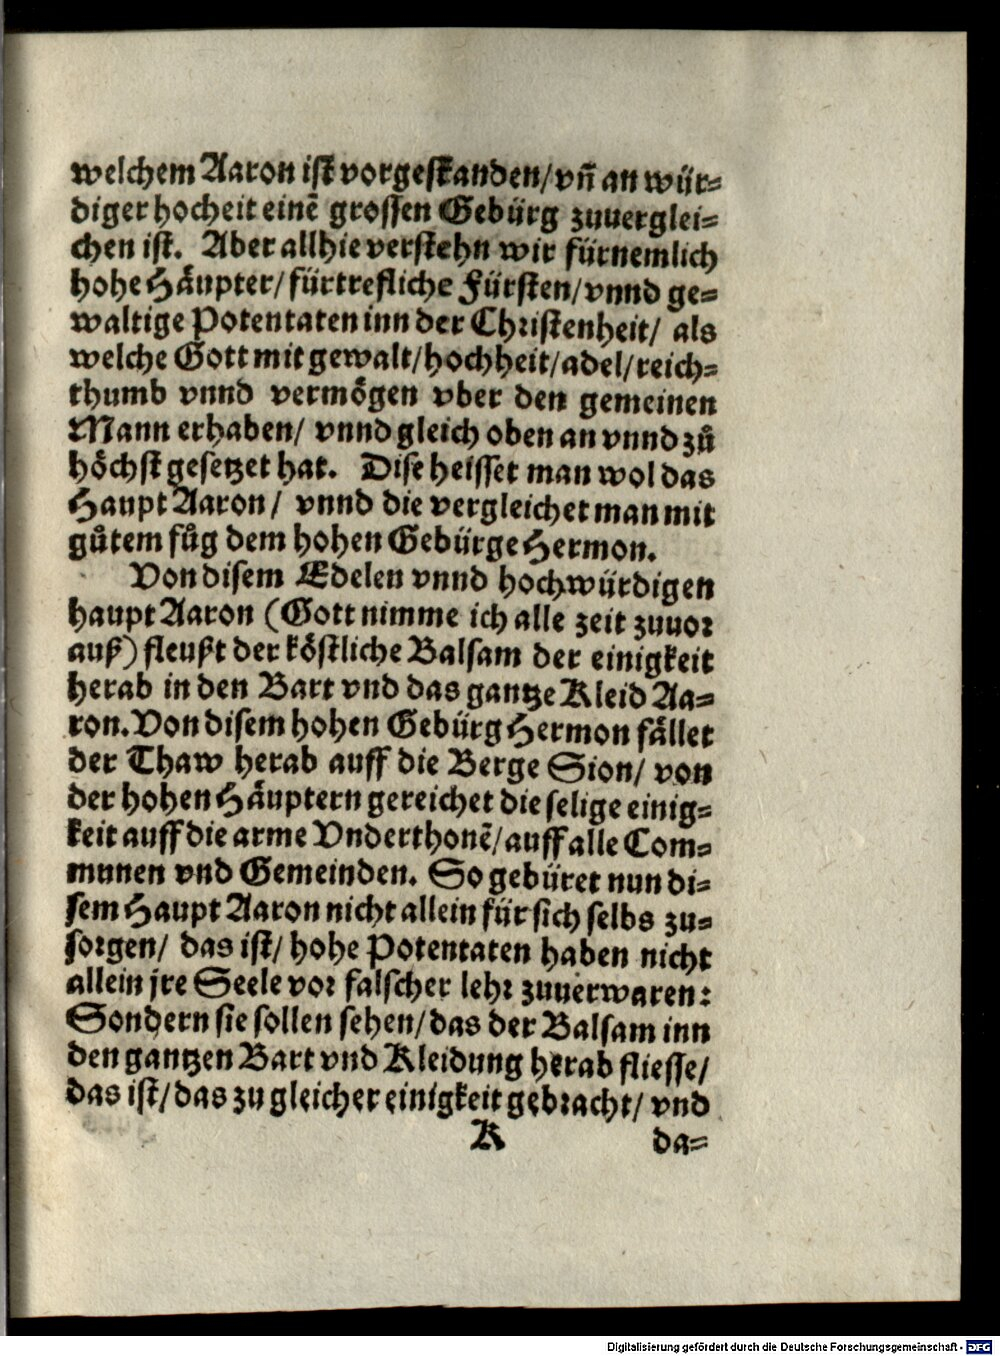 welchem Aaron ist vorgestanden/ vñ an wür⸗
diger hocheit einē grossen Gebürg zuuerglei⸗
chen ist. Aber allhie verstehn wir fürnemlich
hohe Häupter/ fürtrefliche Fürsten/ vnnd ge⸗
waltige Potentaten inn der Christenheit/ als
welche Gott mit gewalt/ hochheit/ adel/ reich⸗
thumb vnnd vermögen vber den gemeinen
Mann erhaben/ vnnd gleich oben an vnnd zů
höchst gesetzet hat. Dise heisset man wol das
Haupt Aaron/ vnnd die vergleichet man mit
gůtem fůg dem hohen Gebürge Hermon.
Von disem Edelen vnnd hochwürdigen
haupt Aaron (Gott nimme ich alle zeit zuuor
auß) fleußt der köstliche Balsam der einigkeit
herab in den Bart vnd das gantze Kleid Aa⸗
ron. Von disem hohen Gebürg Hermon fället
der Thaw herab auff die Berge Sion/ von
der hohen Häuptern gereichet die selige einig⸗
keit auff die arme Vnderthonē/ auff alle Com⸗
munen vnd Gemeinden. So gebüret nun di⸗
sem Haupt Aaron nicht allein für sich selbs zu⸗
sorgen/ das ist/ hohe Potentaten haben nicht
allein jre Seele vor falscher lehr zuuerwaren:
Sondern sie sollen sehen/ das der Balsam inn
den gantzen Bart vnd Kleidung herab fliesse/
das ist/ das zu gleicher einigkeit gebracht/ vnd
K da⸗
Digitalisierung gefördert durch die Deutsche Forschungsgemeinschaft - DFG